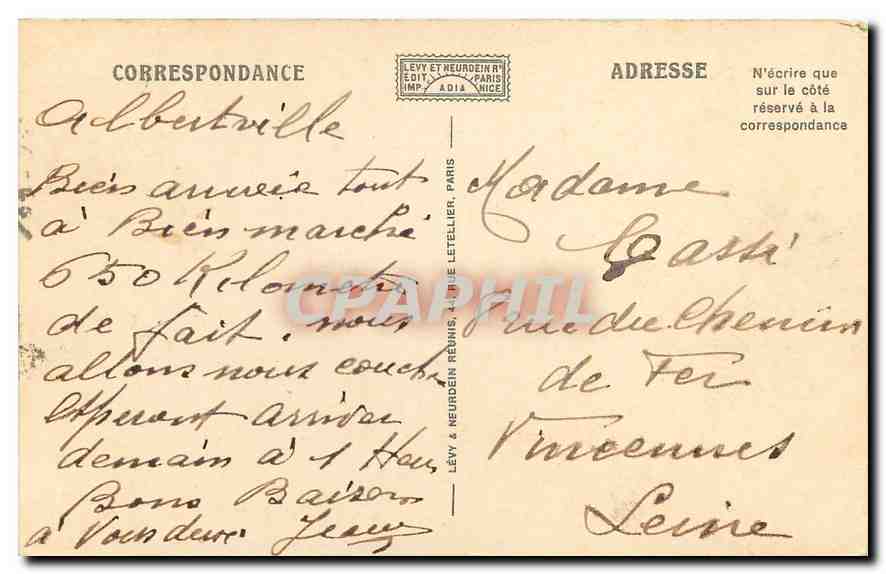 CORRESPONDANCE
LEVY ET NEURDEIN Rs
EDIT. PARIS
IMP. ADIA NICE
ADRESSE
N'écrire que
sur le côté
réservé à la
correspondance
Albertville
Bien arrivée tout
à Bien marché
650 Kilometre
de fait. nous
allons nous couch
Esperant arriver
demain à 1 Heur
Bons Baisers
à Vous deux Jean
LÉVY & NEURDEIN RÉUNIS, 44, RUE LETELLIER, PARIS
Madame
Cassé
rue du Chemin
de Fer
Vincennes
Seine
CPAPHIL